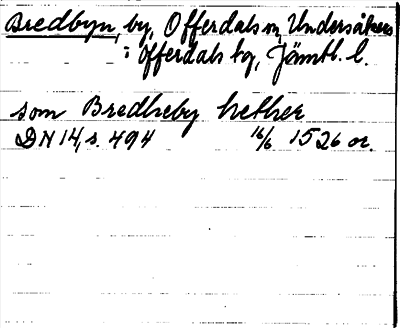 Bredbyn, by, Offerdals sn, Undersåkers
i Offerdals tg, Jämtl. l.
som Bredheby hether
DN 14, s. 494 16/6 1526 or.